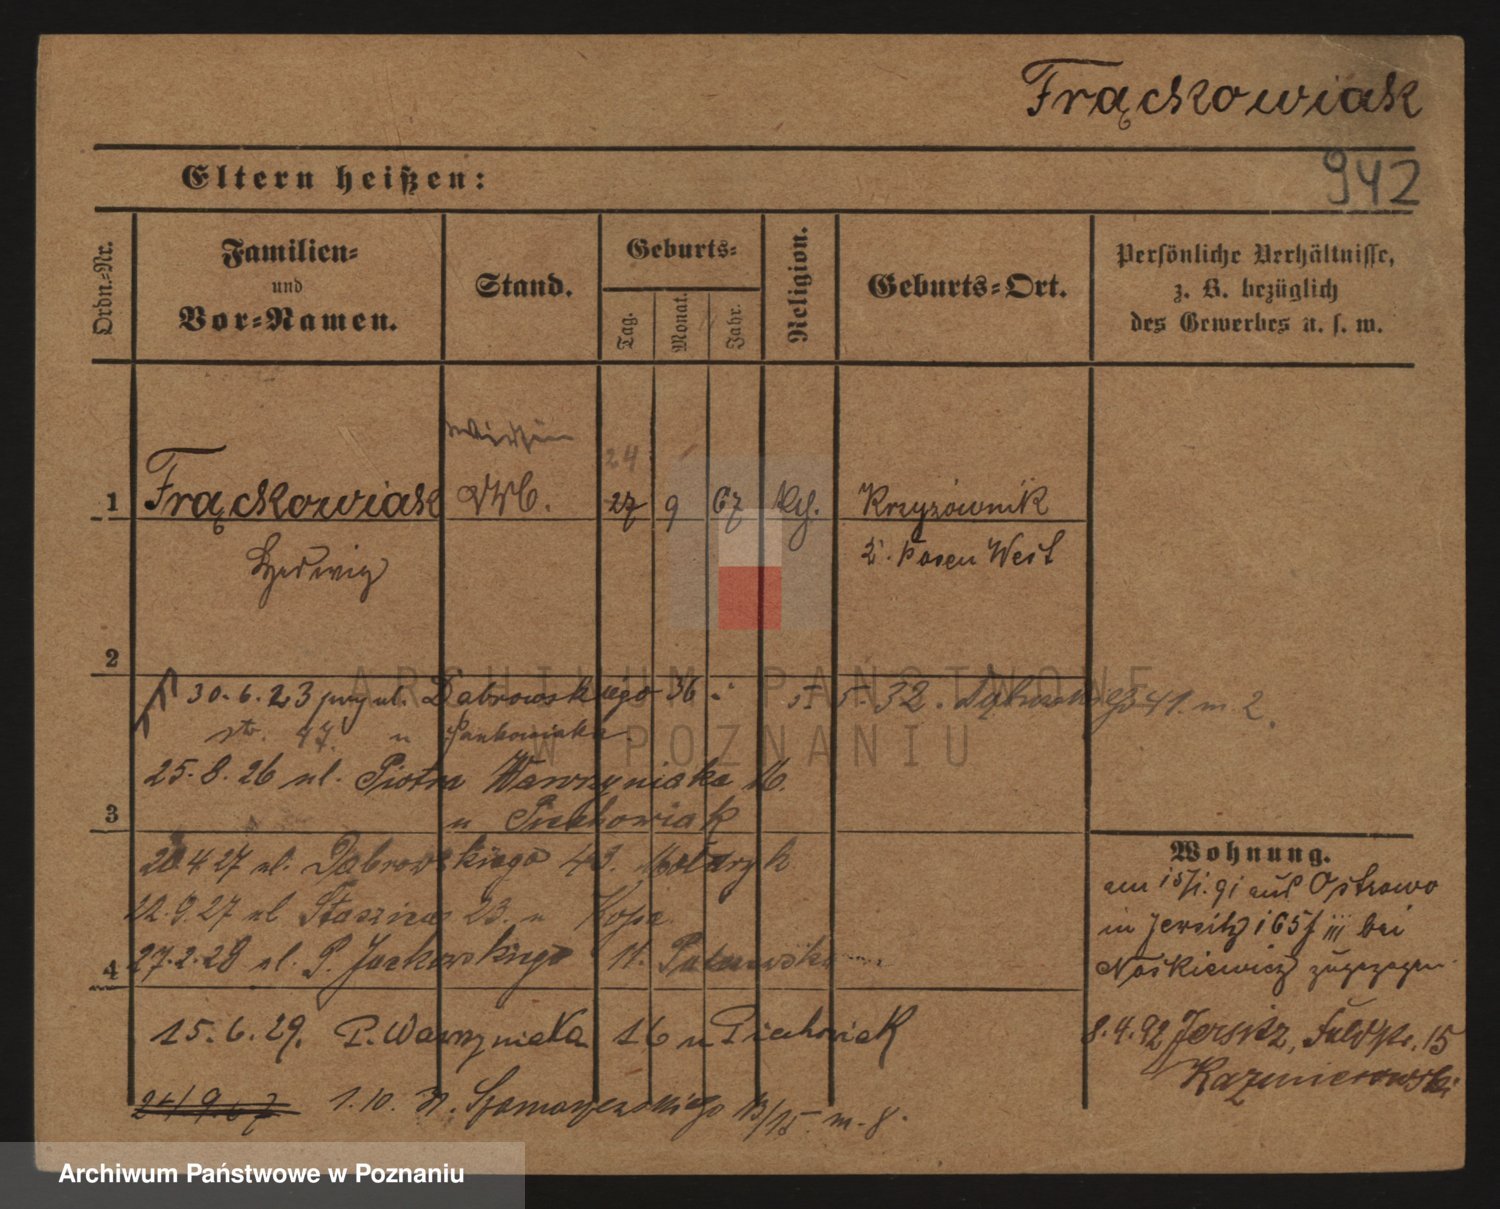 Frąckowiak
942
Eltern heißen:
Ordn.=Nr.
Familien=
und
Vor=Namen.
Stand.
Geburts=
Tag.
Monat.
Jahr.
Religion.
Geburts=Ort.
Persönliche Verhältnisse,
z. B. bezüglich
des Gewerbes u. s. w.
24
1 Frąckowiak 27 9 67 Krzyżownik
Hedwig Posen West
2
30.6.23 ul. Dąbrowskiego 36
5. 32. 41. m. 2.
47. u
25.8.26 ul. Piotra Wawrzyniaka 16.
3
u Piechowiak
4.27 ul. Dąbrowskiego 49.
22.9.27 ul Staszica 23. u
4
27.2.28 ul. P. Jackowskiego 11.
15.6.29. P. Wawrzyniaka 16 u Piechowiak
24/9.67 1.10. 31. Szamarzewskiego 13/15 m. 8.
Wohnung.
am 15/1.91 aus Ostrowo
in Jersitz 165 III bei
Noskiewicz zugezogen
8.4.92 Jersitz, 15
Kazmierowski
ARCHIWUM PAŃSTWOWE
W POZNANIU
Archiwum Państwowe w Poznaniu